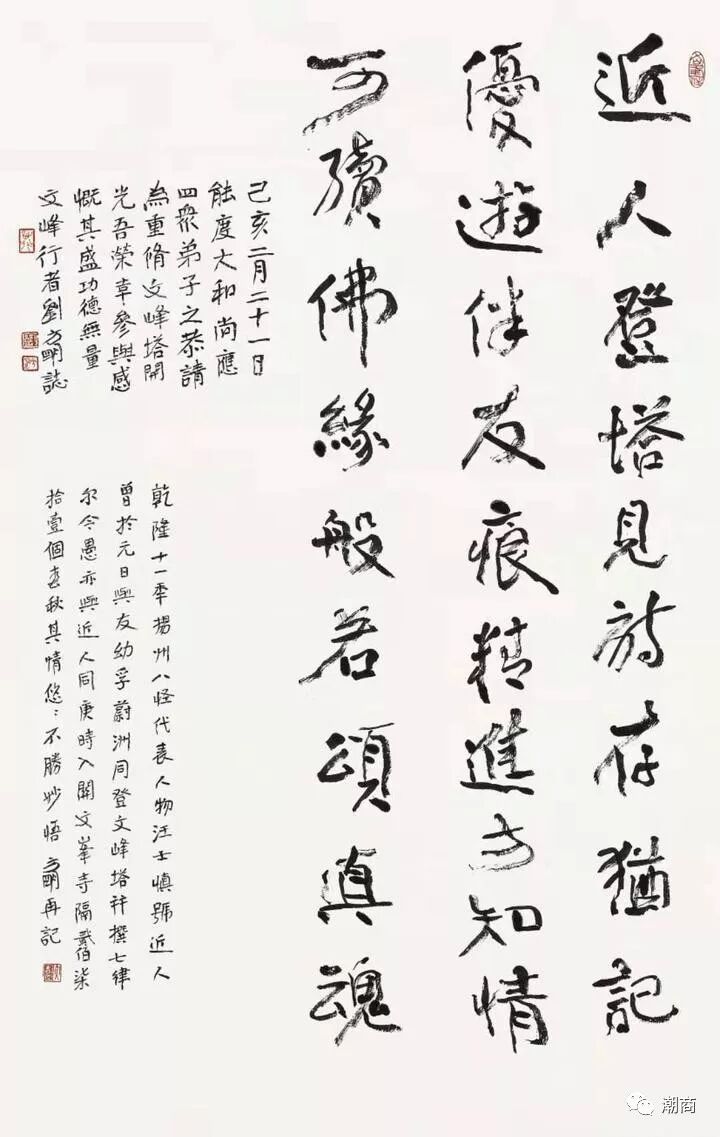 近人登塔見詩存猶記
優遊伴友痕精進方知情
可續佛緣般若頌真魂
己亥二月二十一日
能度大和尚應
四衆弟子之恭請
為重脩文峰塔開
光吾榮幸參與感
慨其盛功德無量
文峰行者劉方明誌
乾隆十一年揚州八怪代表人物汪士慎號近人
曾於元日與友幼孚蔚洲同登文峰塔并撰七律
尔今愚亦與近人同庚時入關文峯寺隔貳佰柒
拾壹個春秋其情悠:不勝妙悟 方明再記
潮商